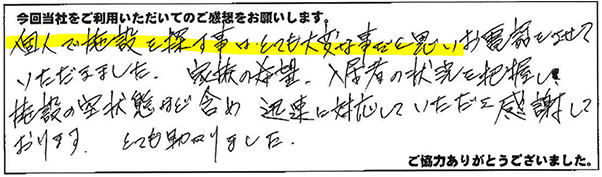 今回当社をご利用いただいてのご感想をお願いします。
個人で施設を探す事はとても大変な事だと思いお電話をさせて
いただきました。家族の希望、入居者の状況を把握し、
施設の空状態など含め迅速に対応していただき感謝して
おります。とても助かりました。
ご協力ありがとうございました。